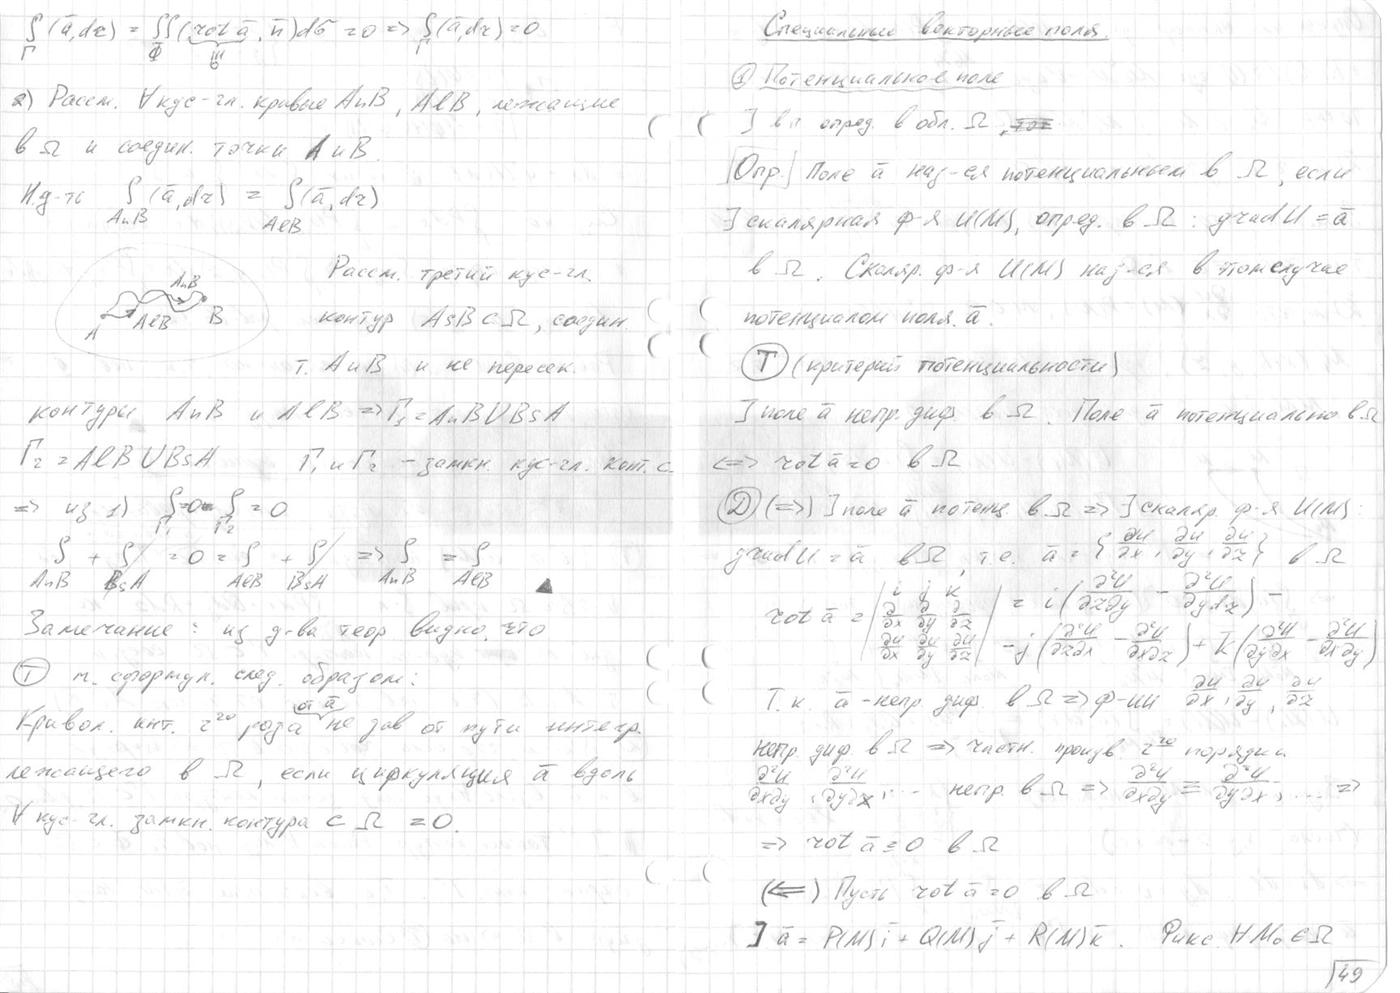 ∫_Г (ā,dr) = ∬_Ф (rot ā, n̄)dσ = 0 => ∫_Г (ā,dr) = 0
≡0
2) Рассм. ∀ кус-гл. кривые AnB, AlB, лежащие
в Ω и соедин. точки A и B.
Н.д-ть ∫_AnB (ā,dr) = ∫_AlB (ā,dr)
AnB
AlB
A
B
Рассм. третий кус-гл.
контур AsB ⊂ Ω, соедин.
т. A и B и не пересек.
контуры AnB и AlB => Г₁ = AnB ∪ BsA
Г₂ = AlB ∪ BsA Г₁ и Г₂ - замкн. кус-гл. конт. с.
=> из 1) ∫_Г₁ =0= ∫_Г₂ = 0
∫_AnB + ∫_BsA = 0 = ∫_AlB + ∫_BsA => ∫_AnB = ∫_AlB ▲
Замечание: из д-ва теор видно, что
Ⓣ м. сформул. след. образом:
Кривол. инт. 2го рода от ā не зав от пути интегр.
лежащего в Ω, если циркуляция ā вдоль
∀ кус-гл. замкн. контура ⊂ Ω =0.
Специальные векторные поля.
① Потенциальное поле
] вп опред. в обл. Ω,
|Опр.| Поле ā наз-ся потенциальным в Ω, если
∃ скалярная ф-я U(M), опред. в Ω: grad U = ā
в Ω. Скаляр. ф-я U(M) наз-ся в том случае
потенциалом поля ā.
Ⓣ (критерий потенциальности)
] поле ā непр. диф. в Ω. Поле ā потенциально в Ω
<=> rot ā = 0 в Ω
Ⓓ (=>) ] поле ā потенц. в Ω => ∃ скаляр. ф-я U(M):
grad U = ā в Ω, т.е. ā = {∂U/∂x, ∂U/∂y, ∂U/∂z} в Ω
rot ā = | i j k ; ∂/∂x ∂/∂y ∂/∂z ; ∂U/∂x ∂U/∂y ∂U/∂z | = i(∂²U/∂z∂y - ∂²U/∂y∂z) -
-j(∂²U/∂z∂x - ∂²U/∂x∂z) + k̄(∂²U/∂y∂x - ∂²U/∂x∂y)
Т.к. ā - непр. диф. в Ω => ф-ии ∂U/∂x, ∂U/∂y, ∂U/∂z
непр. диф в Ω => частн. произв. 2го порядка
∂²U/∂x∂y, ∂²U/∂y∂x, ... непр. в Ω => ∂²U/∂x∂y = ∂²U/∂y∂x, ... =>
=> rot ā ≡ 0 в Ω
(<=) Пусть rot ā = 0 в Ω
] ā = P(M)ī + Q(M)j̄ + R(M)k̄. Фикс. ∀ M₀ ∈ Ω
49